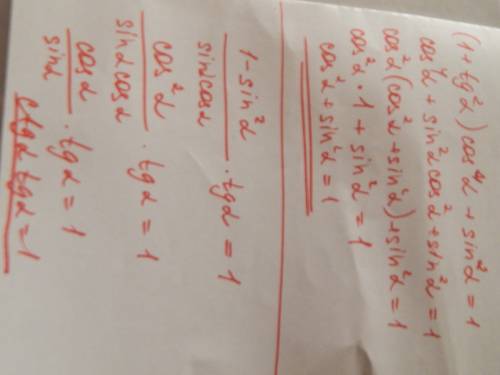 (1 + tg²α) cos⁴α + sin²α = 1
cos⁴α + sin²α cos² + sin² = 1
cos²(cos²α + sin²α) + sin²α = 1
cos² · 1 + sin² = 1
cos² + sin² = 1
1 - sin²α / sinα cosα · tgα = 1
cos²α / sinα cosα · tgα = 1
cosα / sinα · tgα = 1
ctgα tgα = 1